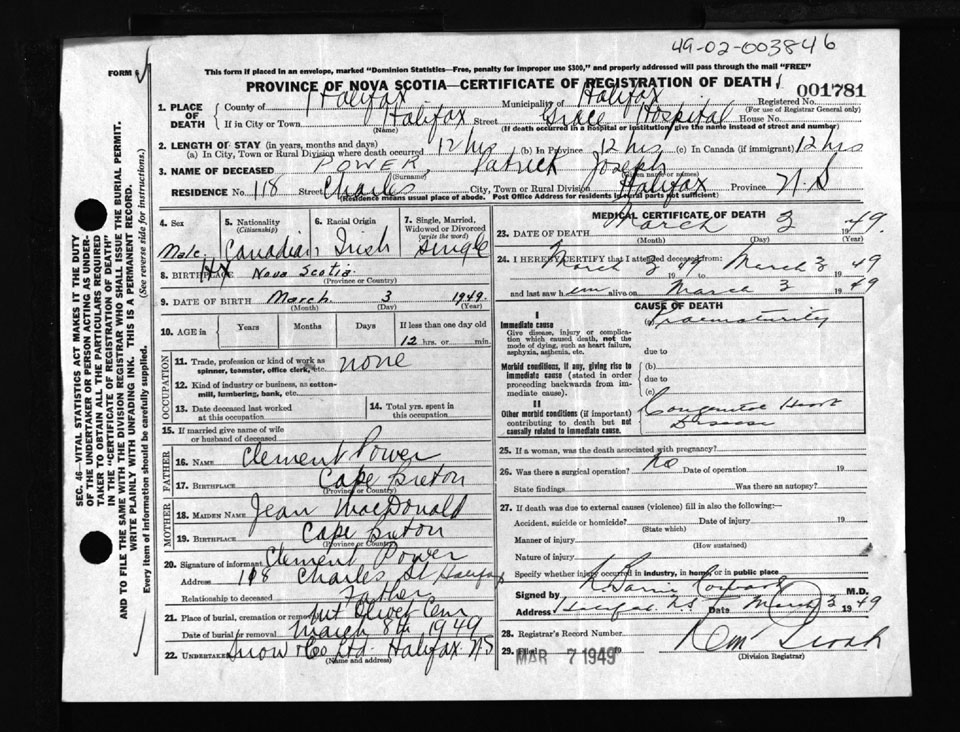 49-02-003846
FORM
This form if placed in an envelope, marked "Dominion Statistics—Free, penalty for improper use $300," and properly addressed will pass through the mail "FREE"
PROVINCE OF NOVA SCOTIA—CERTIFICATE OF REGISTRATION OF DEATH
001781
1. PLACE OF DEATH County of Halifax Municipality of Halifax Registered No.
(For use of Registrar General only)
If in City or Town Halifax Street Grace Hospital House No.
(Name) (If death occurred in a hospital or institution, give name instead of street and number)
2. LENGTH OF STAY (in years, months and days)
(a) In City, Town or Rural Division where death occurred 12 hrs (b) In Province 12 hrs (c) In Canada (if immigrant) 12 hrs
3. NAME OF DECEASED POWER, Patrick Joseph
(Surname) (Given name or names)
RESIDENCE No. 118 Street Charles City, Town or Rural Division Halifax Province N.S
(Residence means usual place of abode. Post Office Address for residents in rural parts not sufficient)
4. Sex
Male
5. Nationality
(Citizenship)
Canadian
6. Racial Origin
Irish
7. Single, Married, Widowed or Divorced
(write the word)
single
8. BIRTHPLACE Hfx Nova Scotia
(Province or Country)
9. DATE OF BIRTH March 3 1949.
(Month) (Day) (Year)
10. AGE in Years Months Days If less than one day old
12 hrs. or min.
OCCUPATION
11. Trade, profession or kind of work as spinner, teamster, office clerk, etc. none
12. Kind of industry or business, as cotton-mill, lumbering, bank, etc.
13. Date deceased last worked at this occupation
14. Total yrs. spent in this occupation
15. If married give name of wife or husband of deceased
FATHER
16. NAME Clement Power
17. BIRTHPLACE Cape Breton
(Province or Country)
MOTHER
18. MAIDEN NAME Jean MacDonald
19. BIRTHPLACE Cape Breton
(Province or Country)
20. Signature of informant Clement Power
Address 118 Charles St Halifax
Relationship to deceased Father
21. Place of burial, cremation or removal Mt Olivet Cem
Date of burial or removal March 8th 1949
22. Undertaker Snow & Co Ltd. Halifax N.S
(Name and address)
MEDICAL CERTIFICATE OF DEATH
23. DATE OF DEATH March 3 1949.
(Month) (Day) (Year)
24. I HEREBY CERTIFY that I attended deceased from:
March 3 1949 to March 3 1949
and last saw h em alive on March 3 1949
CAUSE OF DEATH
I
Immediate cause (a) Prematurity
Give disease, injury or complication which caused death, not the mode of dying, such as heart failure, asphyxia, asthenia, etc.
due to
Morbid conditions, if any, giving rise to immediate cause (stated in order proceeding backwards from immediate cause).
(b)
due to
(c)
II
Other morbid conditions (if important) contributing to death but not causally related to immediate cause.
Congenital Heart
Disease
25. If a woman, was the death associated with pregnancy?
26. Was there a surgical operation? No Date of operation 19
State findings Was there an autopsy?
27. If death was due to external causes (violence) fill in also the following:—
Accident, suicide or homicide? Date of injury 19
(State which)
Manner of injury
(How sustained)
Nature of injury
Specify whether injury occurred in industry, in home, or in public place
Signed by M.D.
Address Halifax N.S Date March 3 1949
28. Registrar's Record Number
29. Filed MAR 7 1949 19
(Division Registrar)
SEC. 46—VITAL STATISTICS ACT MAKES IT THE DUTY
OF THE UNDERTAKER OR PERSON ACTING AS UNDER-
TAKER TO OBTAIN ALL THE PARTICULARS REQUIRED
IN THE "CERTIFICATE OF REGISTRATION OF DEATH"
AND TO FILE THE SAME WITH THE DIVISION REGISTRAR WHO SHALL ISSUE THE BURIAL PERMIT.
WRITE PLAINLY WITH UNFADING INK. THIS IS A PERMANENT RECORD.
Every item of information should be carefully supplied. (See reverse side for instructions.)